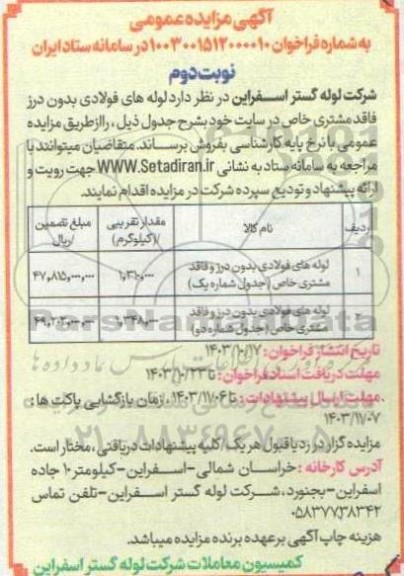 آگهی مزایده عمومی
به شماره فراخوان ۱۰۰۳۰۰۱۵۱۲۰۰۰۰۱۰ در سامانه ستاد ایران
نوبت دوم
شرکت لوله گستر اسفراین در نظر دارد لوله های فولادی بدون درز
فاقد مشتری خاص در سایت خود بشرح جدول ذیل ، را از طریق مزایده
عمومی با نرخ پایه کارشناسی بفروش برساند. متقاضیان میتوانند با
مراجعه به سامانه ستاد به نشانی WWW.Setadiran.ir جهت رویت و
ارائه پیشنهاد و تودیع سپرده شرکت در مزایده اقدام نمایند.
ردیف نام کالا مقدار تقریبی /(کیلوگرم) مبلغ تضمین /ریال
۱ لوله های فولادی بدون درز و فاقد مشتری خاص (جدول شماره یک) ۴۷,۸۱۵,۰۰۰,۰۰۰
۲ لوله های فولادی بدون درز و فاقد مشتری خاص (جدول شماره دو)
تاریخ انتشار فراخوان : ۱۴۰۳/۱۰/۱۷
مهلت دریافت اسناد فراخوان : تا ۱۴۰۳/۱۰/۲۳
مهلت ارسال پیشنهادات : تا ۱۴۰۳/۱۱/۰۶ ، زمان بازگشایی پاکت ها :
۱۴۰۳/۱۱/۰۷
مزایده گزار در رد یا قبول هر یک/کلیه پیشنهادات دریافتی ، مختار است.
آدرس کارخانه : خراسان شمالی - اسفراین - کیلومتر ۱۰ جاده
اسفراین - بجنورد ، شرکت لوله گستر اسفراین - تلفن تماس
۰۵۸۳۷۷۳۸۳۴۲
هزینه چاپ آگهی بر عهده برنده مزایده میباشد.
کمیسیون معاملات شرکت لوله گستر اسفراین